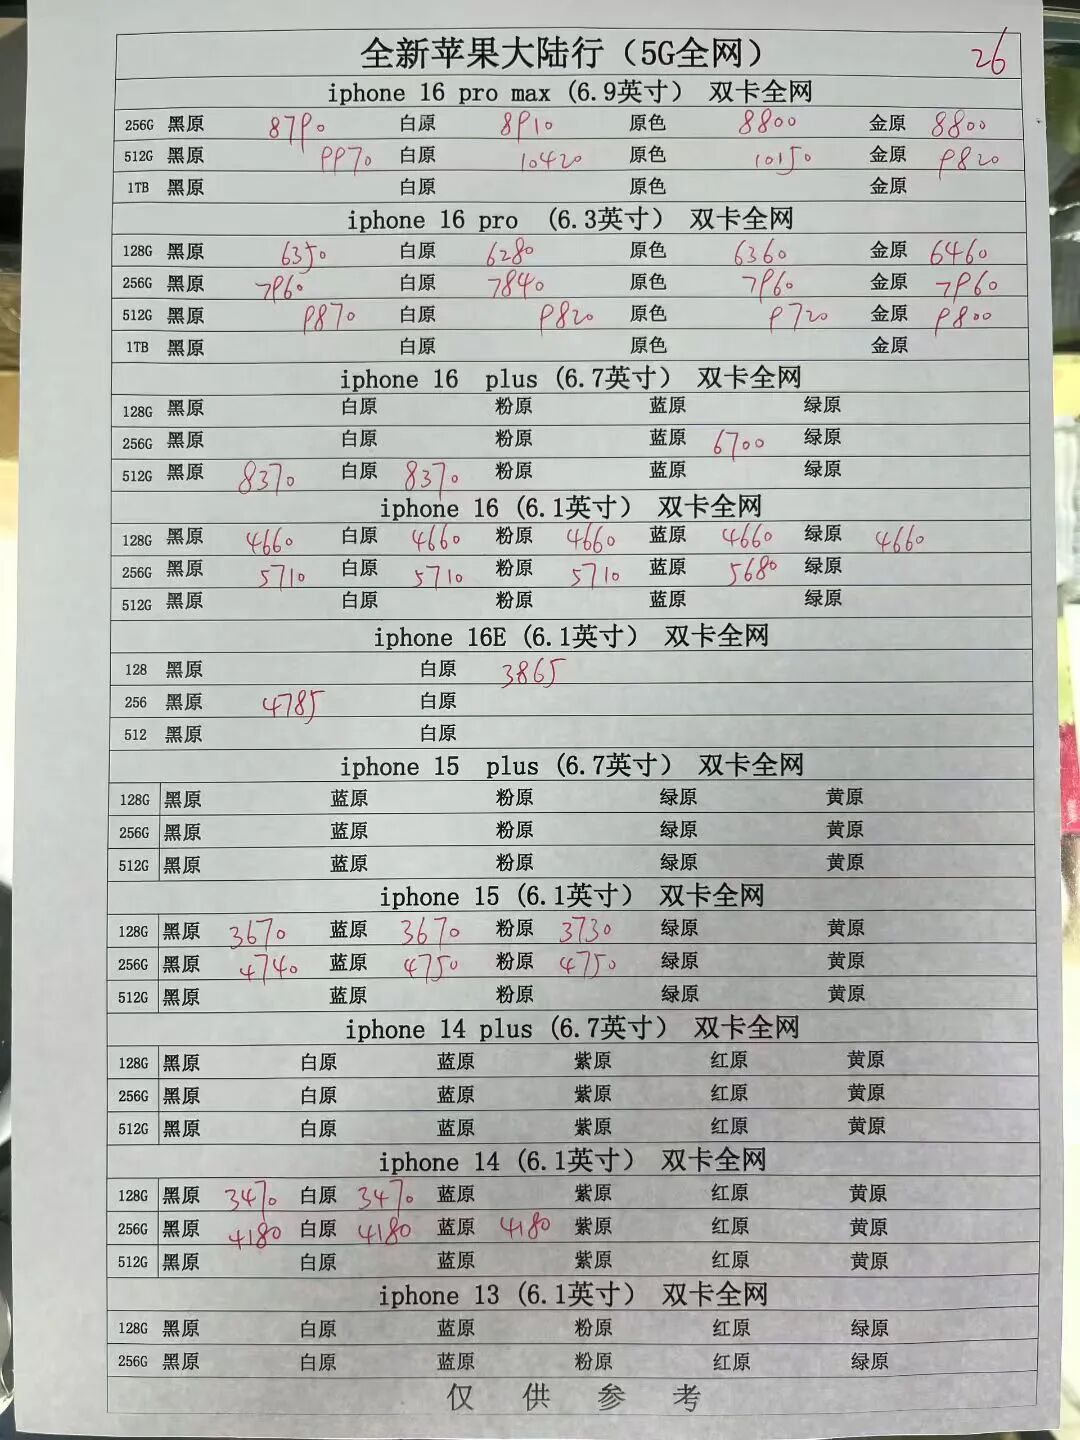 全新苹果大陆行（5G全网） 26
iphone 16 pro max (6.9英寸） 双卡全网
256G 黑原 8790 白原 8910 原色 8800 金原 8800
512G 黑原 9970 白原 10420 原色 10150 金原 9820
1TB 黑原 白原 原色 金原
iphone 16 pro (6.3英寸） 双卡全网
128G 黑原 6350 白原 6280 原色 6360 金原 6460
256G 黑原 7960 白原 7840 原色 7960 金原 7960
512G 黑原 9870 白原 9820 原色 9720 金原 9800
1TB 黑原 白原 原色 金原
iphone 16 plus (6.7英寸） 双卡全网
128G 黑原 白原 粉原 蓝原 绿原
256G 黑原 白原 粉原 蓝原 6700 绿原
512G 黑原 8370 白原 8370 粉原 蓝原 绿原
iphone 16 (6.1英寸） 双卡全网
128G 黑原 4660 白原 4660 粉原 4660 蓝原 4660 绿原 4660
256G 黑原 5710 白原 5710 粉原 5710 蓝原 5680 绿原
512G 黑原 白原 粉原 蓝原 绿原
iphone 16E (6.1英寸） 双卡全网
128 黑原 白原 3865
256 黑原 4785 白原
512 黑原 白原
iphone 15 plus (6.7英寸） 双卡全网
128G 黑原 蓝原 粉原 绿原 黄原
256G 黑原 蓝原 粉原 绿原 黄原
512G 黑原 蓝原 粉原 绿原 黄原
iphone 15 (6.1英寸） 双卡全网
128G 黑原 3670 蓝原 3670 粉原 3730 绿原 黄原
256G 黑原 4740 蓝原 4750 粉原 4750 绿原 黄原
512G 黑原 蓝原 粉原 绿原 黄原
iphone 14 plus (6.7英寸） 双卡全网
128G 黑原 白原 蓝原 紫原 红原 黄原
256G 黑原 白原 蓝原 紫原 红原 黄原
512G 黑原 白原 蓝原 紫原 红原 黄原
iphone 14 (6.1英寸） 双卡全网
128G 黑原 3470 白原 3470 蓝原 紫原 红原 黄原
256G 黑原 4180 白原 4180 蓝原 4180 紫原 红原 黄原
512G 黑原 白原 蓝原 紫原 红原 黄原
iphone 13 (6.1英寸） 双卡全网
128G 黑原 白原 蓝原 粉原 红原 绿原
256G 黑原 白原 蓝原 粉原 红原 绿原
仅 供 参 考